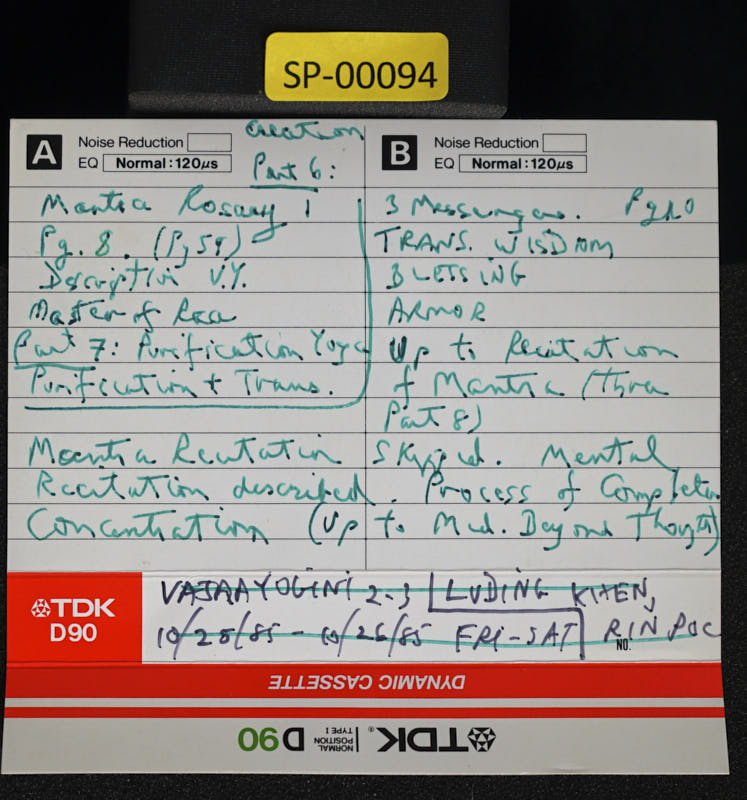 SP-00094
A
Noise Reduction
EQ Normal:120µs
Creation
Part 6:
Mantra Rosary 1
Pg. 8. (Pg 59)
Description V.Y.
Master of Race
Part 7: Purification Yoga
Purification + Trans.
B
Noise Reduction
EQ Normal:120µs
3 Messengers. Pg 10
TRANS. WISDOM
BLESSING
ARMOR
Up to Recitation
of Mantra (thru
Part 8)
Mantra Recitation Skipped. Mental
Recitation described. Process of Completion
Concentration (Up to Med. Beyond Thought)
TDK
D90
VAJRAYOGINI 2-3 LUDING KHEN,
10/25/85 - 10/26/85 FRI-SAT RINPOC
NO.
DYNAMIC CASSETTE
TDK® NORMAL POSITION TYPE I D90